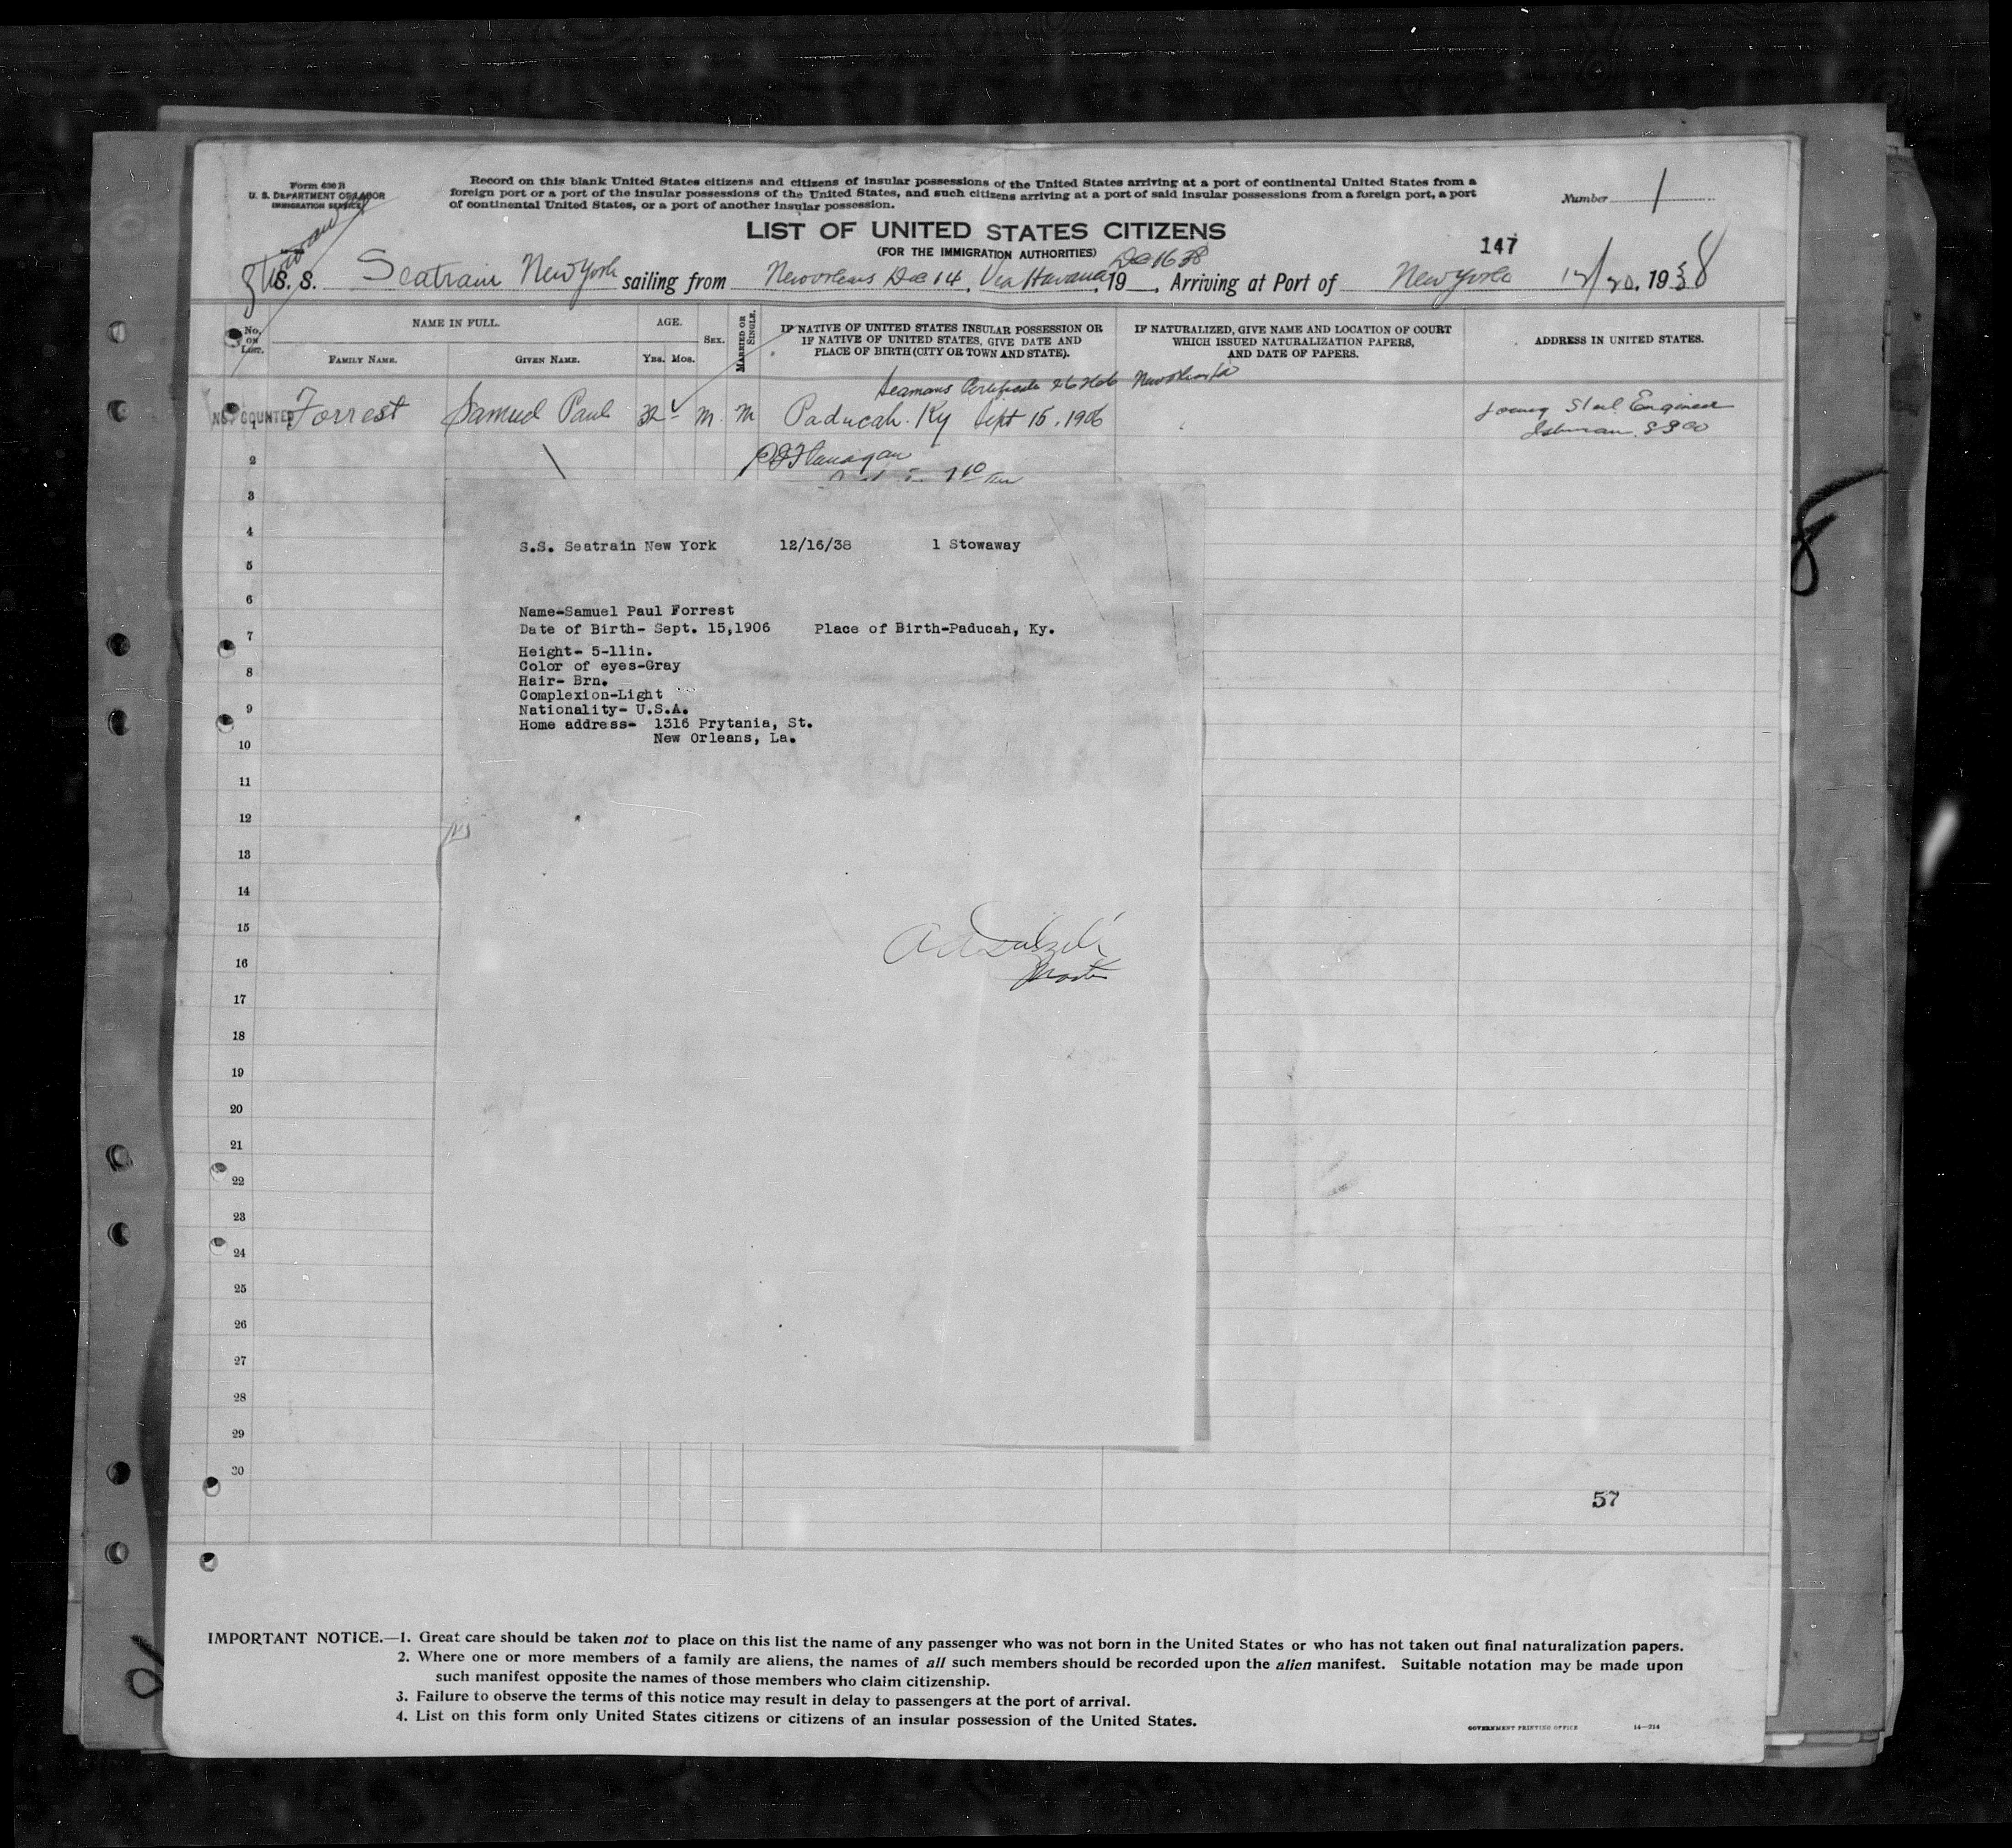 Form 630 B
U. S. DEPARTMENT OF LABOR
IMMIGRATION SERVICE
Record on this blank United States citizens and citizens of insular possessions of the United States arriving at a port of continental United States from a
foreign port or a port of the insular possessions of the United States, and such citizens arriving at a port of said insular possessions from a foreign port, a port
of continental United States, or a port of another insular possession.
Number 1
LIST OF UNITED STATES CITIZENS
(FOR THE IMMIGRATION AUTHORITIES)
147
Stowaway
Dec 16 38
S. S. Seatrain New York sailing from New Orleans Dec 14, Via Havana, 19 , Arriving at Port of New York 12/20, 1938
No. on List.
NAME IN FULL.
AGE.
Sex.
MARRIED OR SINGLE.
IF NATIVE OF UNITED STATES INSULAR POSSESSION OR
IF NATIVE OF UNITED STATES, GIVE DATE AND
PLACE OF BIRTH (CITY OR TOWN AND STATE).
IF NATURALIZED, GIVE NAME AND LOCATION OF COURT
WHICH ISSUED NATURALIZATION PAPERS,
AND DATE OF PAPERS.
ADDRESS IN UNITED STATES.
Family Name.
Given Name.
Yrs. Mos.
Seamans Certificate New Orleans La
NOT COUNTED
1 Forrest Samuel Paul 32 M M Paducah. Ky Sept 15, 1906
Steel Engineer
Isthmian SS Co
2
Flanagan
3
4
5
6
7
8
9
10
11
12
13
14
15
16
17
18
19
20
21
22
23
24
25
26
27
28
29
30
S.S. Seatrain New York 12/16/38 1 Stowaway
Name-Samuel Paul Forrest
Date of Birth- Sept. 15,1906 Place of Birth-Paducah, Ky.
Height- 5-11in.
Color of eyes-Gray
Hair- Brn.
Complexion-Light
Nationality- U.S.A.
Home address- 1316 Prytania, St.
New Orleans, La.
Master
57
8
IMPORTANT NOTICE.—1. Great care should be taken not to place on this list the name of any passenger who was not born in the United States or who has not taken out final naturalization papers.
2. Where one or more members of a family are aliens, the names of all such members should be recorded upon the alien manifest. Suitable notation may be made upon
such manifest opposite the names of those members who claim citizenship.
3. Failure to observe the terms of this notice may result in delay to passengers at the port of arrival.
4. List on this form only United States citizens or citizens of an insular possession of the United States.
GOVERNMENT PRINTING OFFICE 14—314